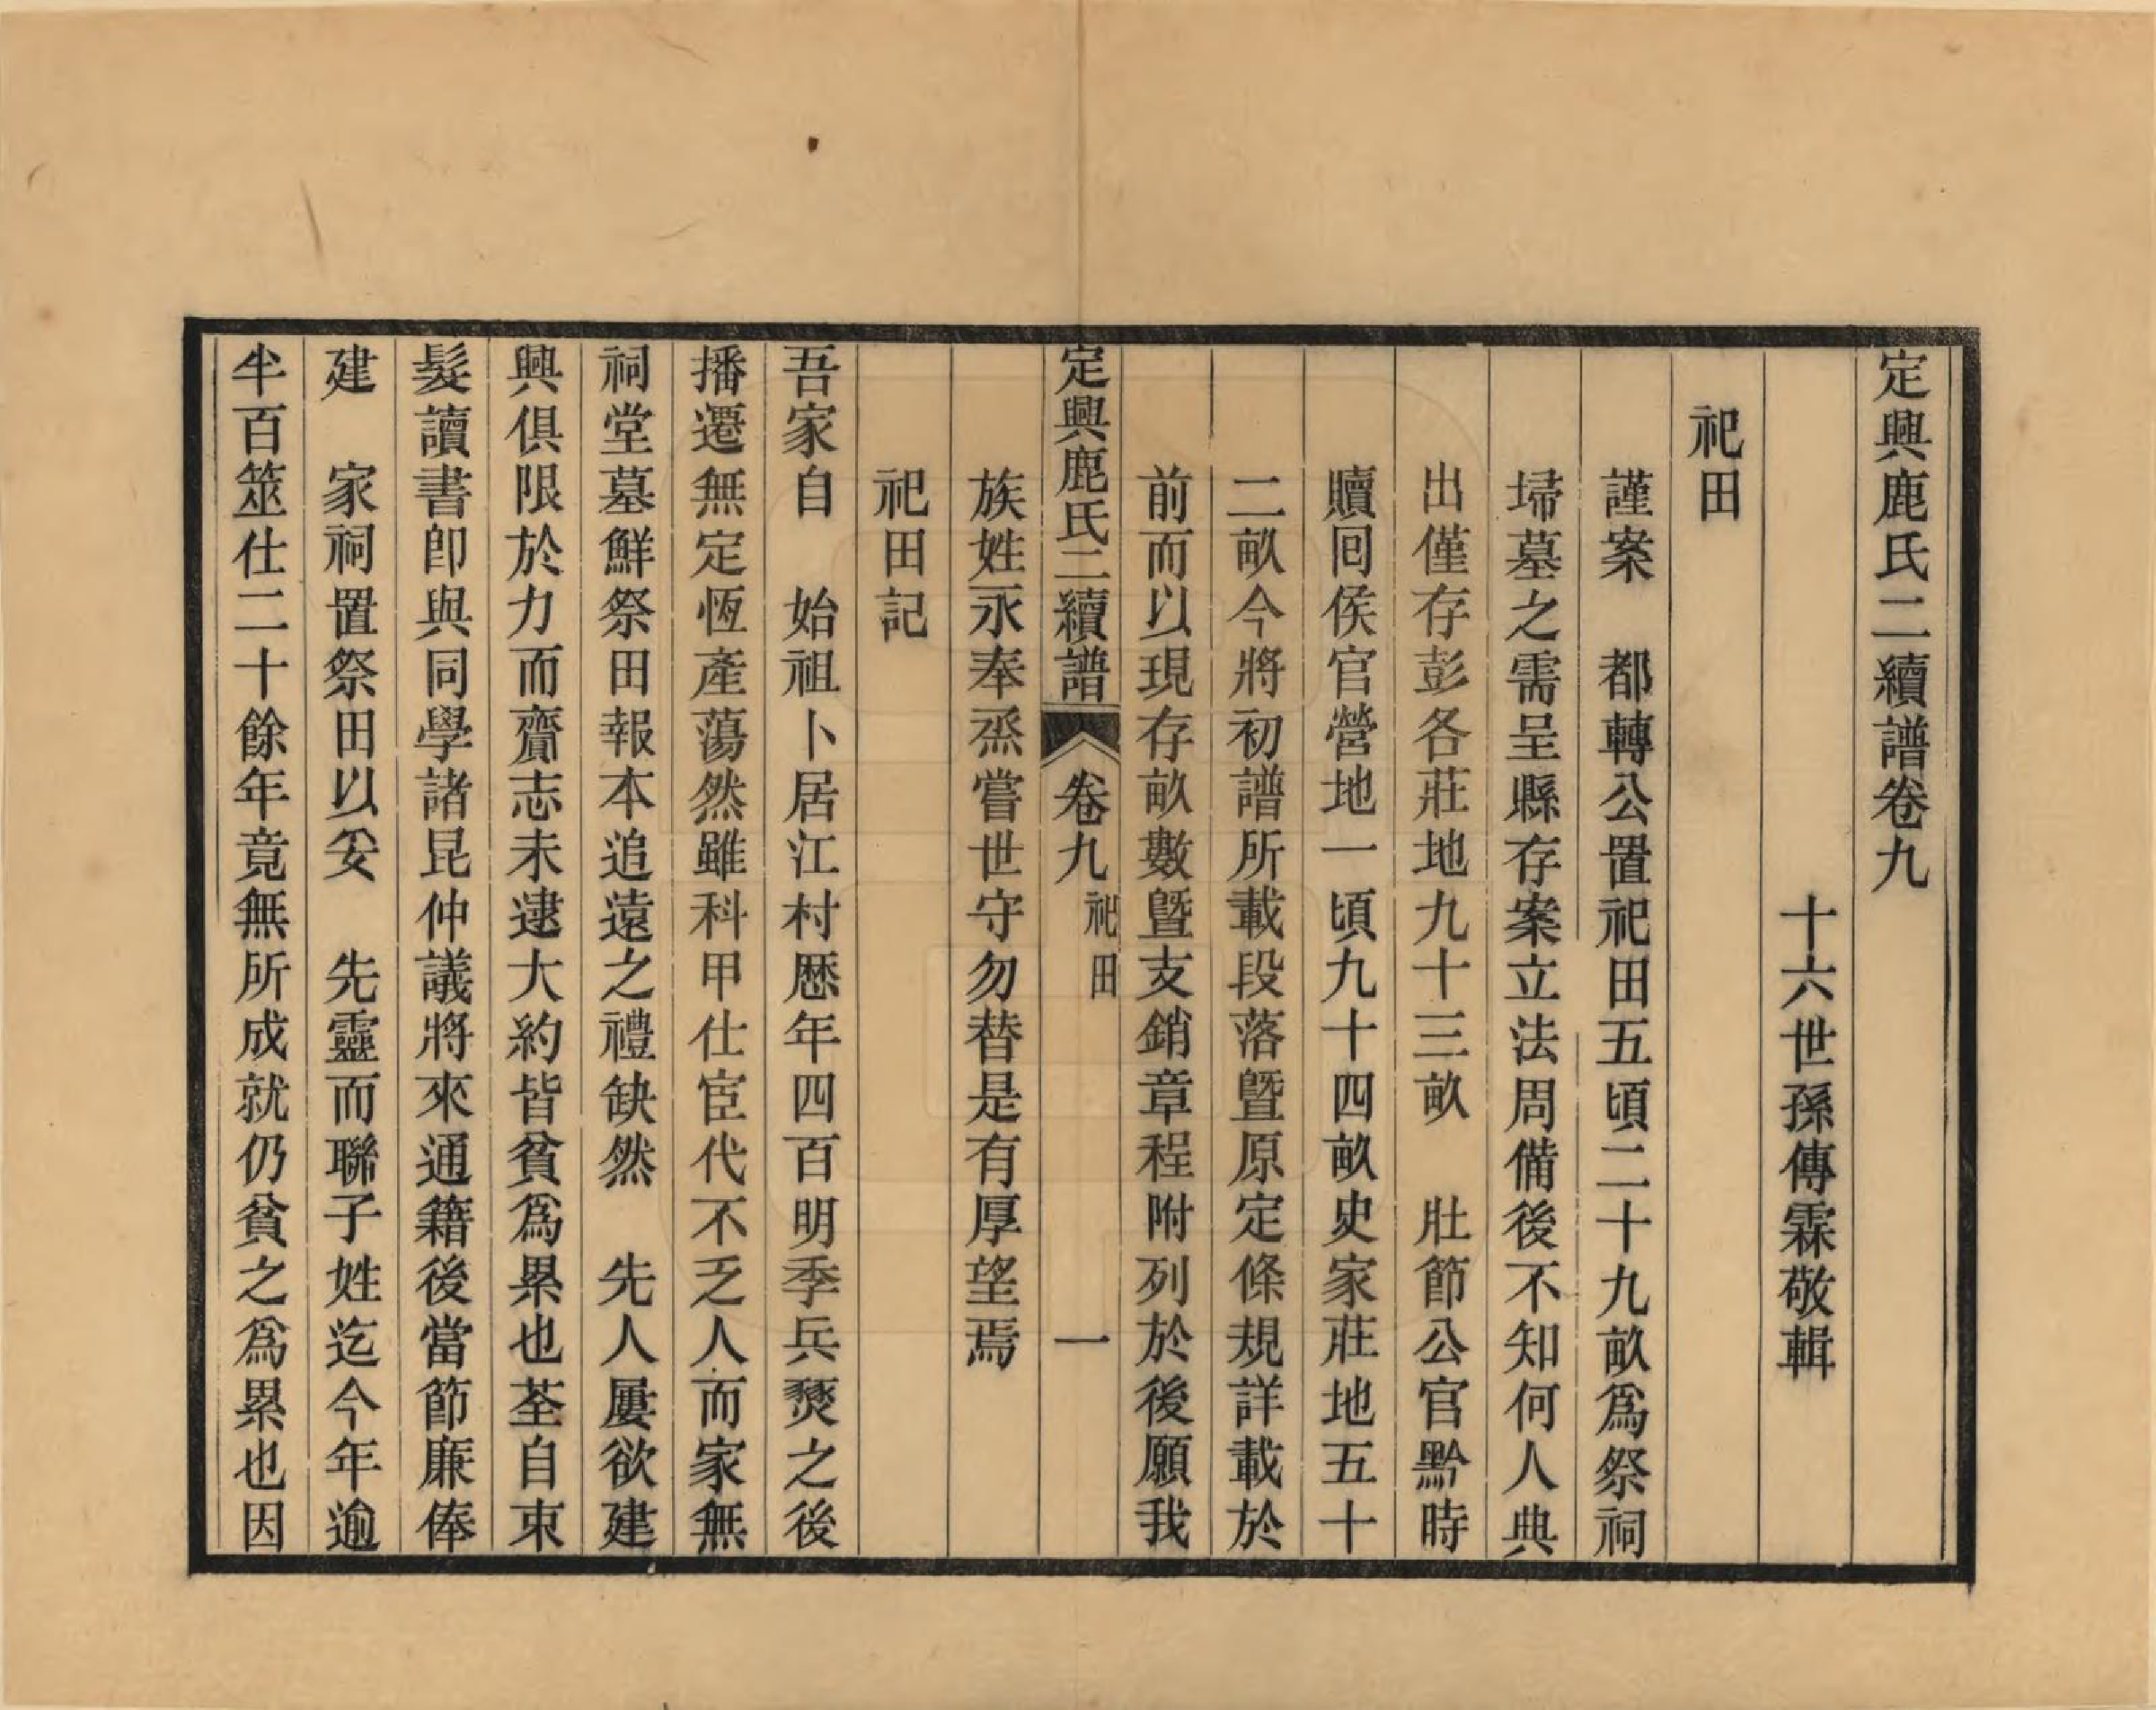 定興鹿氏二續譜卷九
十六世孫傳霖敬輯
祀田
謹案　都轉公置祀田五頃二十九畝爲祭祠
埽墓之需呈縣存案立法周備後不知何人典
出僅存彭各莊地九十三畝　壯節公官黔時
贖囘侯官營地一頃九十四畝史家莊地五十
二畝今將初譜所載段落曁原定條規詳載於
前而以現存畝數曁支銷章程附列於後願我
族姓永奉烝嘗世守勿替是有厚望焉
定興鹿氏二續譜　卷九　祀田　一
祀田記
吾家自　始祖卜居江村歷年四百明季兵燹之後
播遷無定恆產蕩然雖科甲仕宦代不乏人而家無
祠堂墓鮮祭田報本追遠之禮缺然　先人屢欲建
興俱限於力而齎志未逮大約皆貧爲累也荃自束
髮讀書卽與同學諸昆仲議將來通籍後當節廉俸
建　家祠置祭田以妥　先靈而聯子姓迄今年逾
半百筮仕二十餘年竟無所成就仍貧之爲累也因